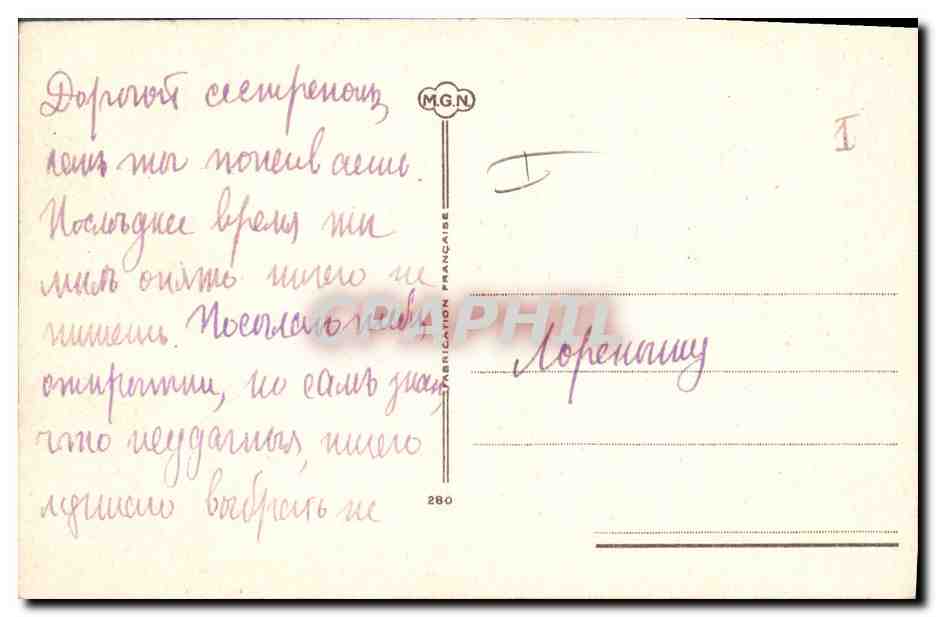 Дорогой сестреночек,
какъ ты поживаешь.
Послѣднее время ты
мнѣ опять ничего не
пишешь. Посылаю тебѣ
открытки, но самъ знаю,
что неудачныя, ничего
лучшаго выбрать не
M.G.N.
FABRICATION FRANÇAISE
280
I
I
CPAPHIL
Лоренышу